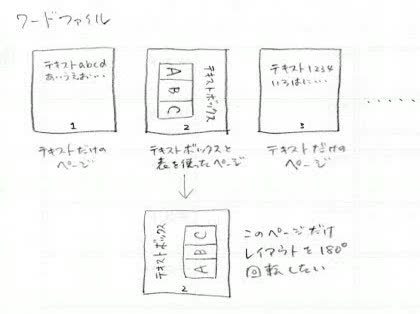 ワードファイル
テキストabcd
あいうえお…
1
テキストだけの
ページ
テキストボックス
A B C
2
テキストボックスと
表を使ったページ
テキスト1234
いろはに…
3
テキストだけの
ページ
.....
テキストボックス
A B C
2
このページだけ
レイアウトを180°
回転したい